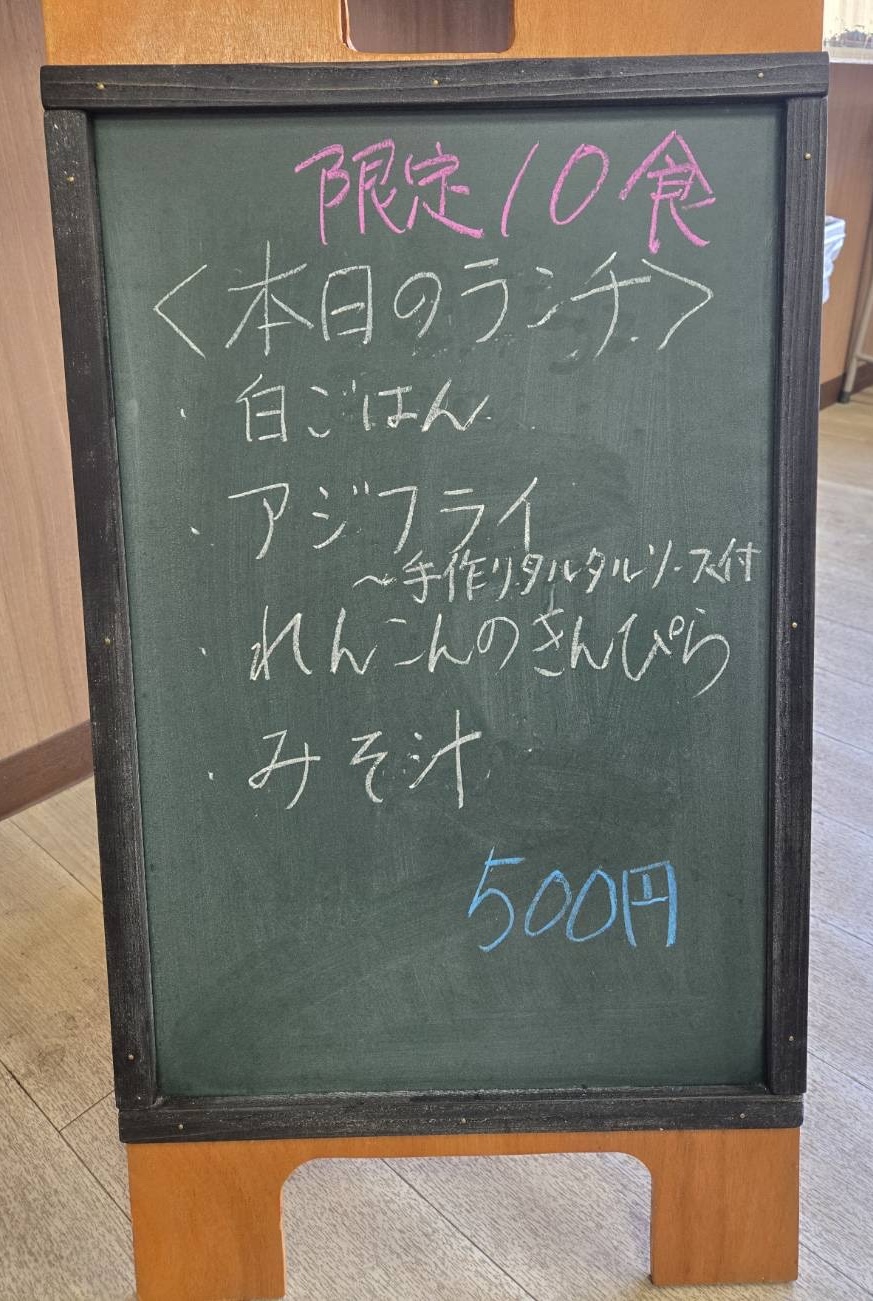 限定10食
<本日のランチ>
・白ごはん
・アジフライ
~手作りタルタルソース付
・れんこんのきんぴら
・みそ汁
500円